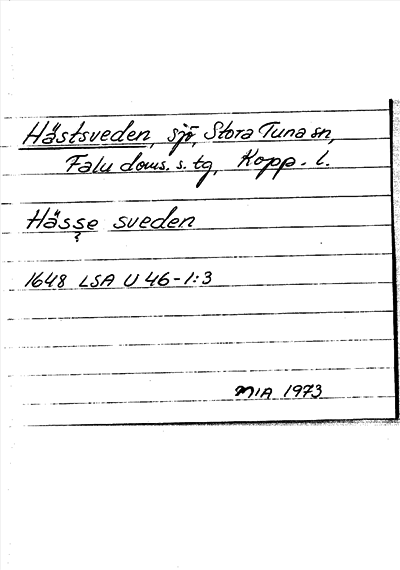 Hästsveden, sjö, Stora Tuna sn,
Falu doms. s. tg, Kopp. l.
Hässe sveden
1648 LSA U 46-1:3
MIA 1973